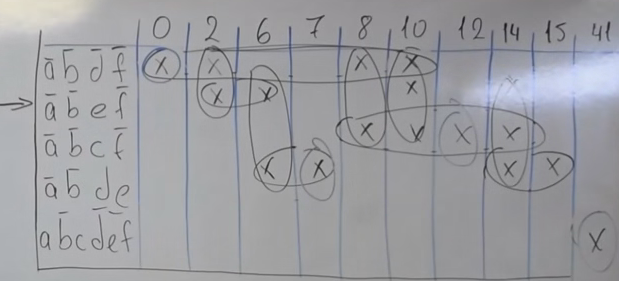 0 2 6 7 8 10 12 14 15 41
a̅ b̅ d̅ f̅ x x x x
→ a̅ b̅ e f̅ x x x x
a̅ b̅ c f̅ x x x x
a̅ b̅ d e x x x x
a b̅ c d̅ e̅ f x